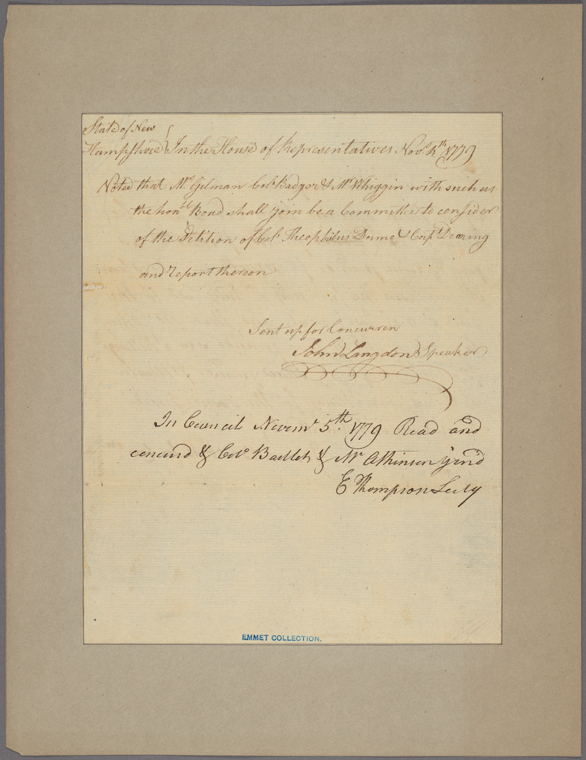 State of New
Hampshire } In the House of Representatives Novr 4th 1779
Voted that Mr Gilman Colo Badger & Mr Whiggin with such as
the honl Board shall join be a Committe to consider
of the Petition of Colo Theophilus Dame & Capt Dearing
and report thereon
Sent up for Concurren
John Langdon Speaker
In Council Novemr 5th 1779 Read and
concurd & Colo Bartlet & Mr Atkinson joind
E Thompson Secty
EMMET COLLECTION.